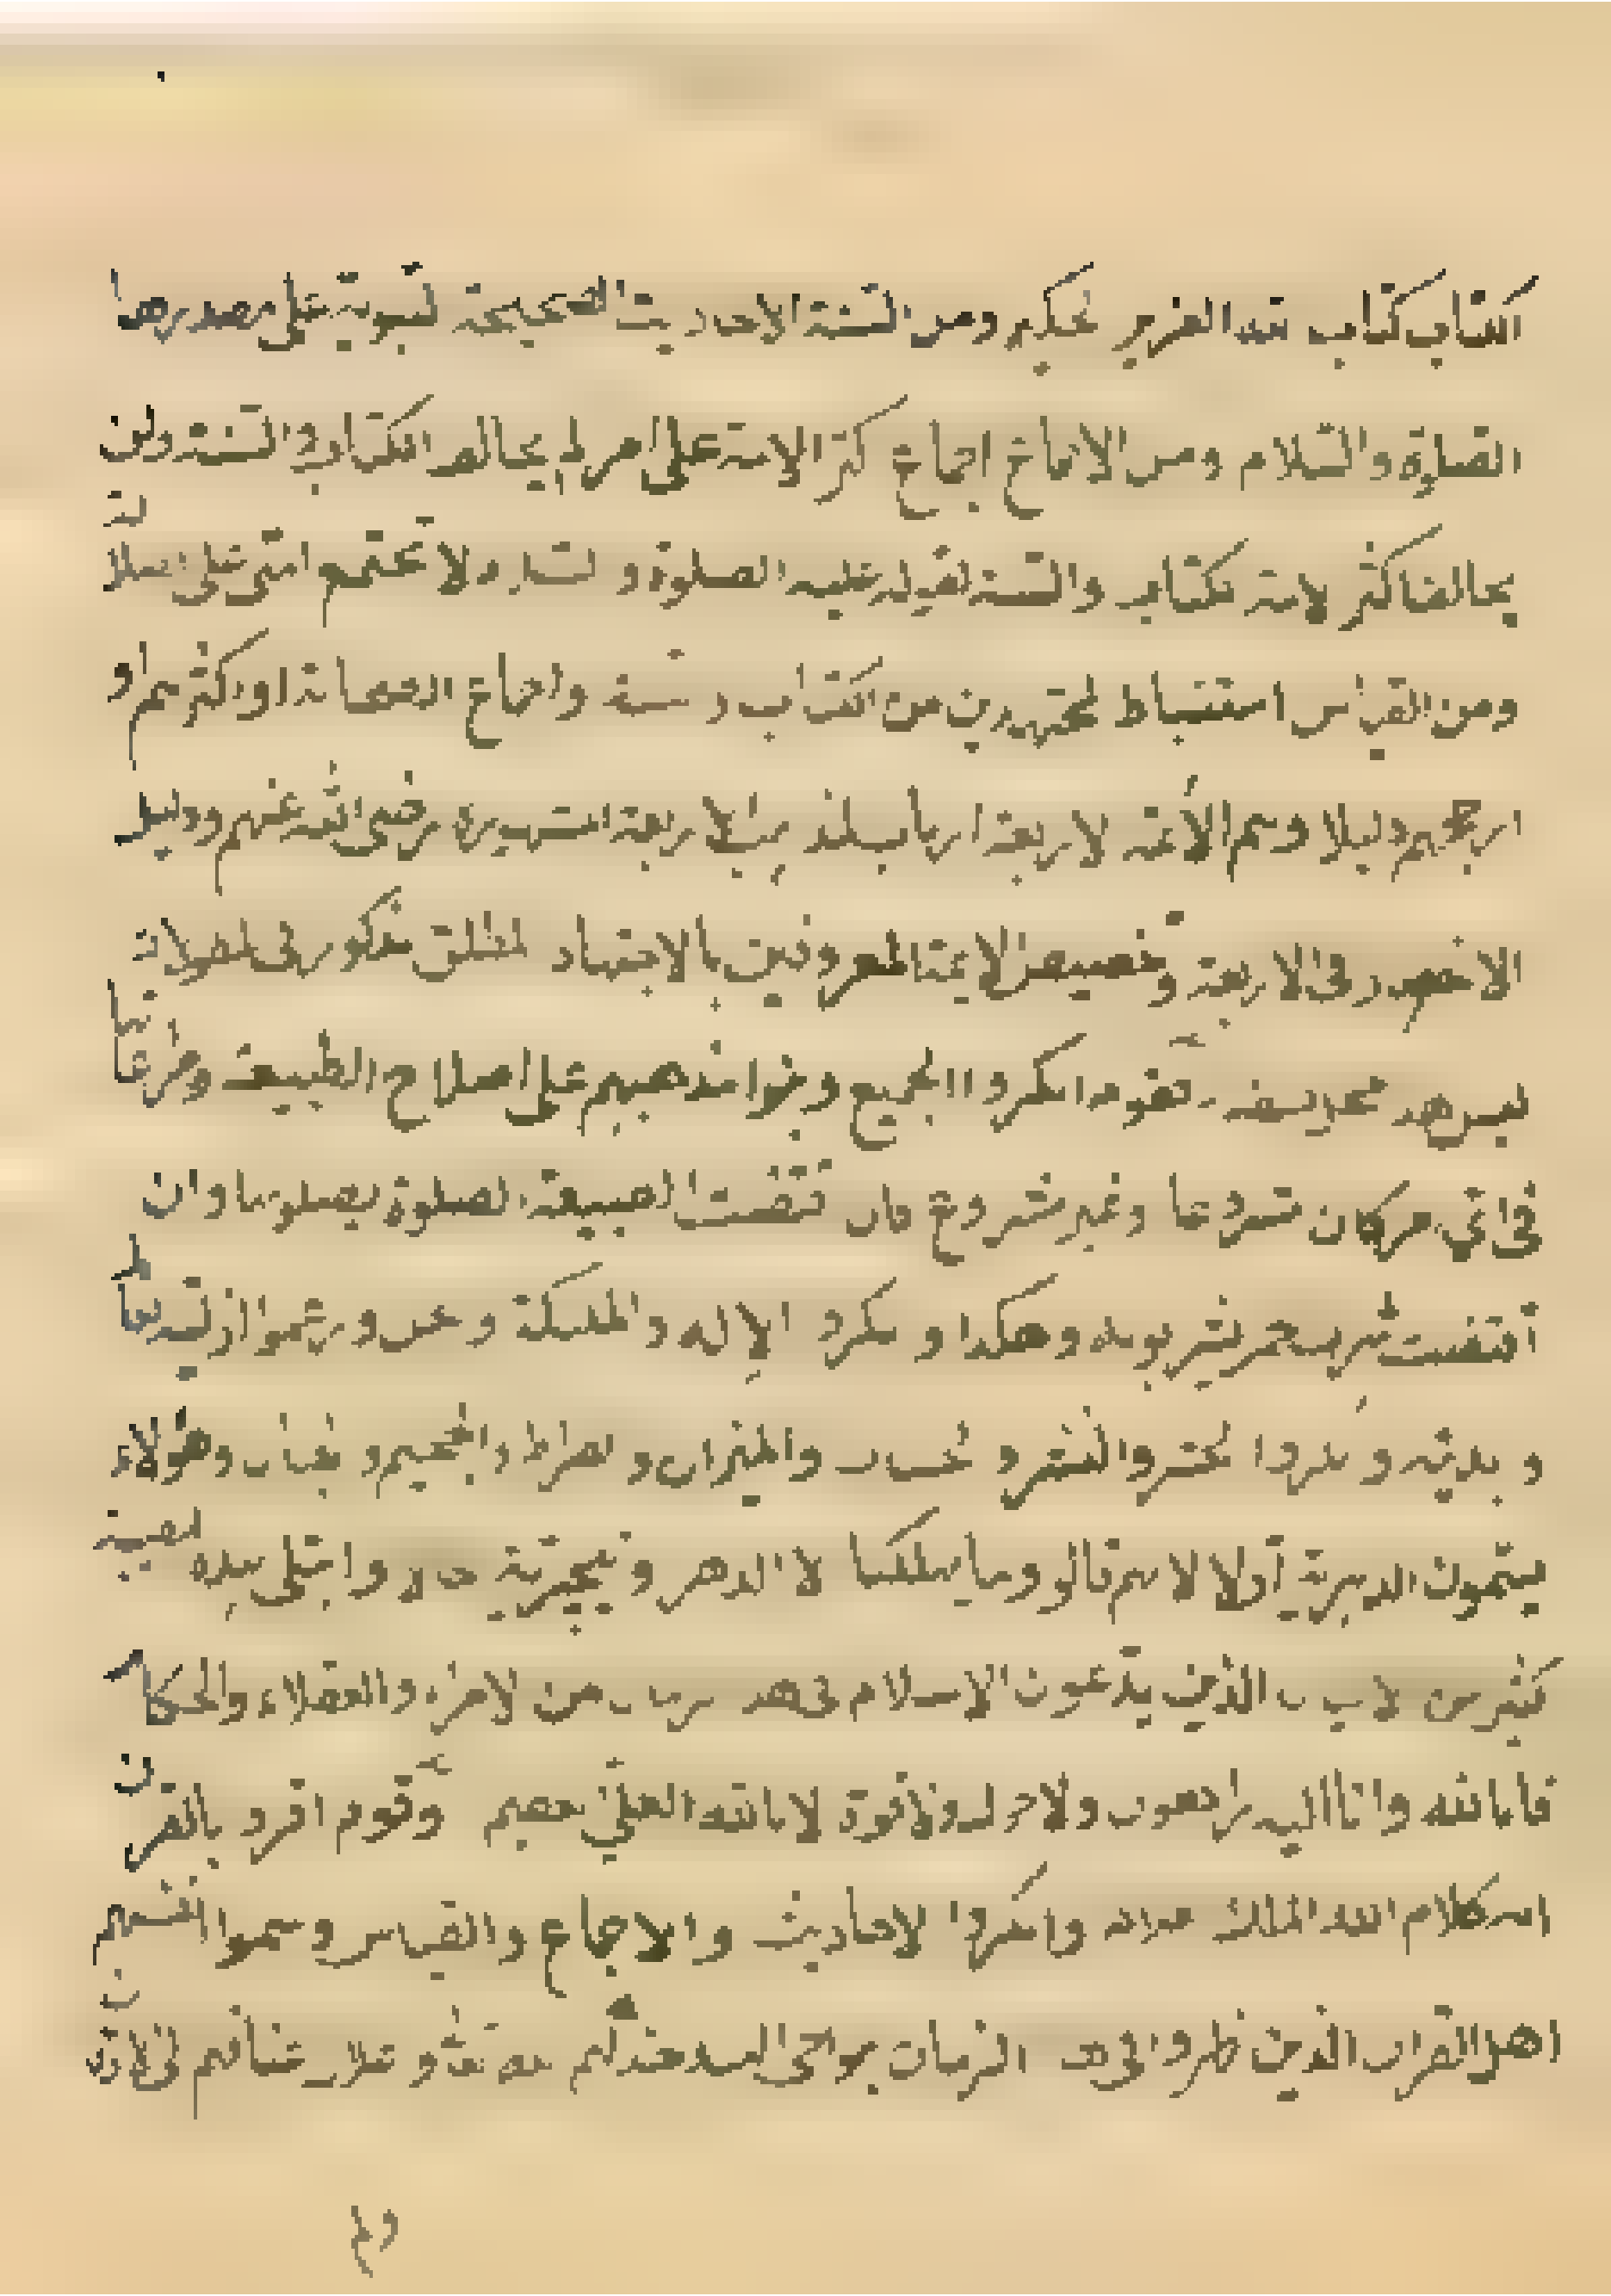 الكتاب كتاب الله العزيز الحكيم ومن السنة الاحاديث الصحيحة النبوية على مصدرها
الصلوة والسلام ومن الاجماع اجماع اكثر الامة على امر لم يخالف الكتاب والسنة ولن
يخالف اكثر الامة الكتاب والسنة لقوله عليه الصلوة والسلام لا تجتمع امتى على الضلالة
ومن القياس استنباط المجتهدين من الكتاب والسنة واجماع الصحابة او اكثرهم او
ارجحهم دليلا وهم الأئمة الاربعة ارباب المذاهب الاربعة المشهورة رضى الله عنهم ودليل
الانحصار فى الاربعة وتخصيص الائمة المعروفين بالاجتهاد المطلق مذكور فى المطولات
ليس هذا محل بسطه قوم انكروا الجميع وبنوا مذهبهم على اصلاح الطبيعة ومراعاتها
فى اى امر كان مشروعا وغير مشروع فان اقتضت الطبيعة الصلوة يصلونها وان
اقتضت شرب الخمر يشربونه وهكذا وانكروا الإله والملئكة والجن وزعموا ازلية العالم
وابديته وانكروا الحشر والنشر والحساب والميزان والصراط والجحيم والجنان وهؤلاء
يسمون الدهرية اولا لانهم قالوا وما يهلكنا الا الدهر والنيجرية حالا وابتلى بهذه المصيبة
كثير من الذين يدّعون الاسلام فى هذا الزمان من الامراء والعقلاء والحكام
فانا لله وانا اليه راجعون ولا حول ولا قوة الا بالله العلى العظيم وقوم اقروا بالقرآن
انه كلام الله الملك وانكروا الاحاديث والاجماع والقياس وسموا انفسهم
اهل القرآن الذين ظهروا فى هذا الزمان
ولم